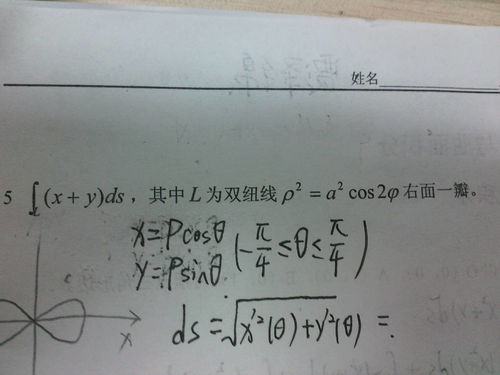 姓名
5 ∫_L (x+y)ds，其中 L 为双纽线 ρ² = a² cos2φ 右面一瓣。
x = ρcosθ
y = ρsinθ (-π/4 ≤ θ ≤ π/4)
x
ds = √(x'²(θ)+y'²(θ)) =